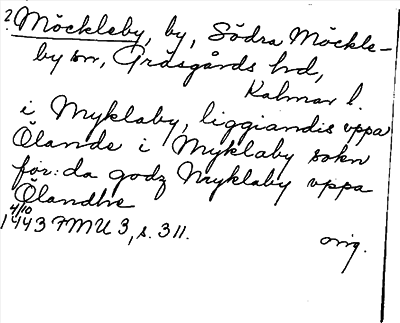 ? Möckleby, by, Södra Möckle-
by sn, Gräsgårds hd,
Kalmar l.
i Myklaby, liggiandis vppa
Ölande i Myklaby sokn
for: da godz Myklaby vppa
Ölandhe
4/10
1443 FMU 3, s. 311.
orig.